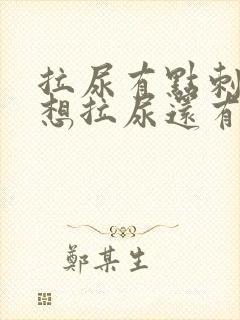 拉尿有點刺
想拉尿還有
鄭某生